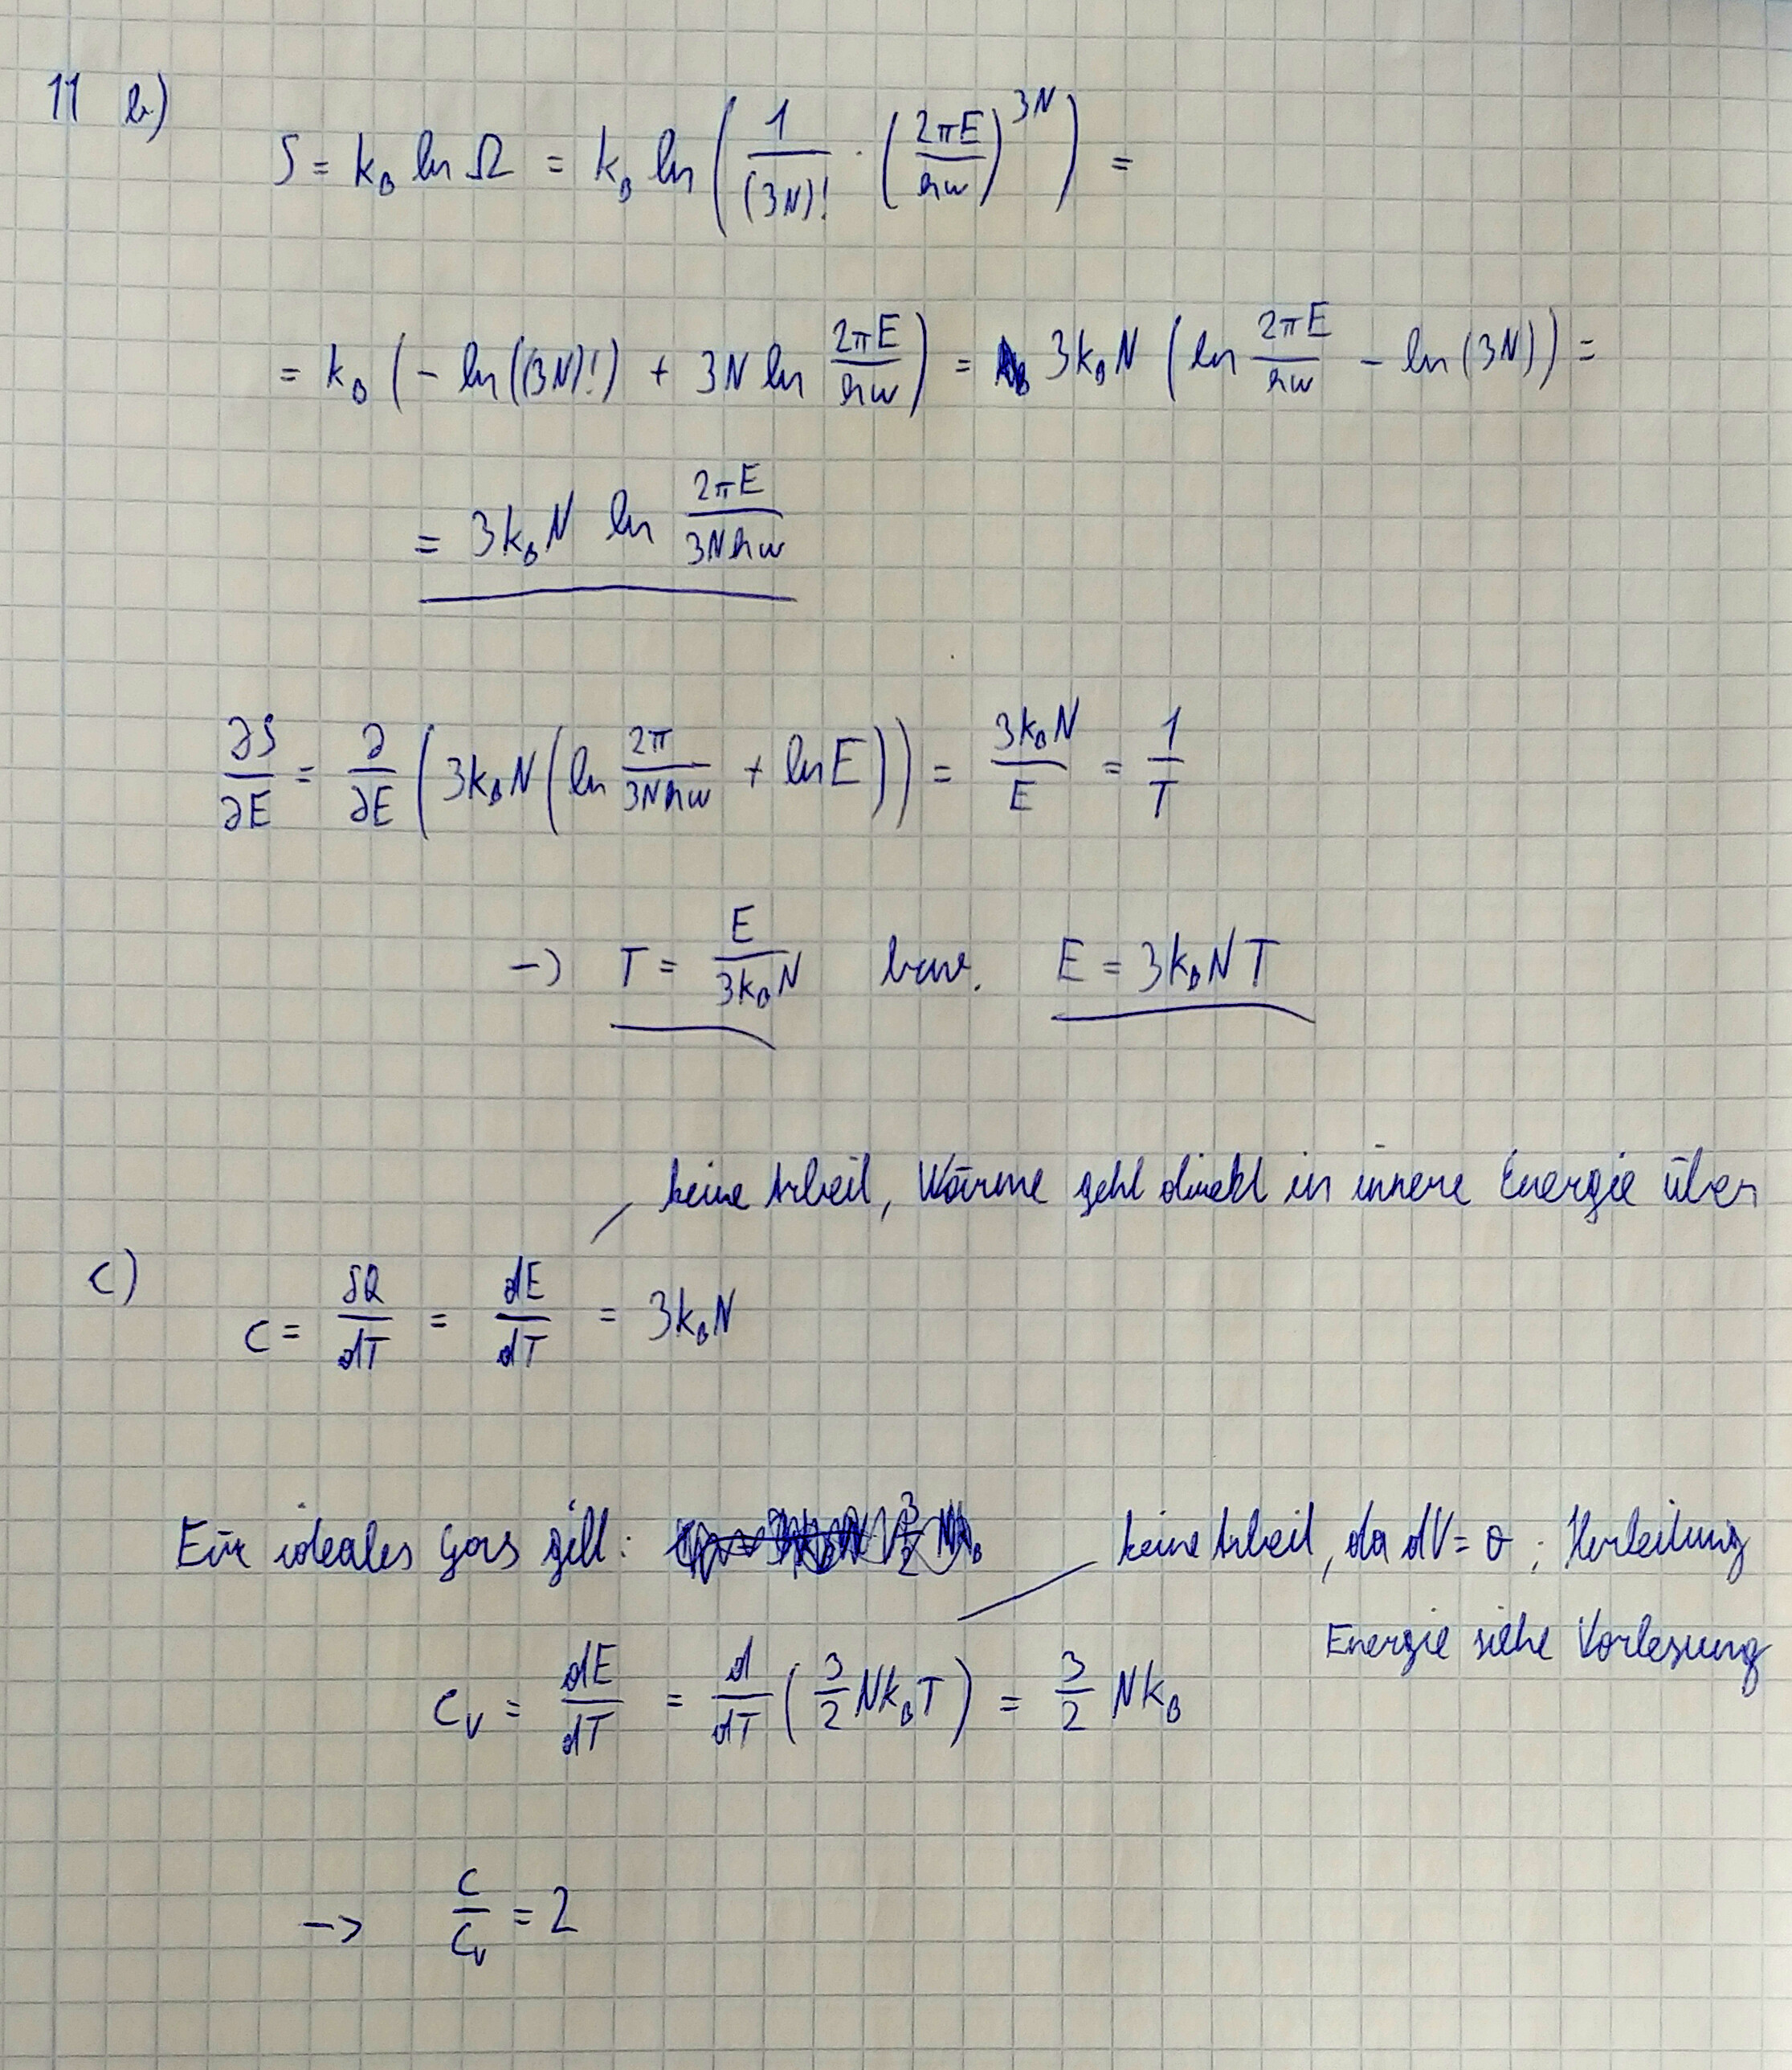 11 b)
S = k_B ln Ω = k_B ln ( 1/(3N)! · (2πE/hw)^3N ) =
= k_B ( - ln((3N)!) + 3N ln 2πE/hw ) = 3k_B N ( ln 2πE/hw - ln (3N) ) =
= 3k_B N ln 2πE/3Nhw
∂S/∂E = ∂/∂E ( 3k_B N ( ln 2π/3Nhw + ln E ) ) = 3k_B N/E = 1/T
-> T = E/3k_B N bzw. E = 3k_B N T
keine Arbeit, Wärme geht direkt in innere Energie über
c) C = δQ/dT = dE/dT = 3k_B N
Für ideales Gas gilt: keine Arbeit, da dV = 0 ; Herleitung
Energie siehe Vorlesung
C_V = dE/dT = d/dT ( 3/2 Nk_B T ) = 3/2 Nk_B
-> C/C_V = 2